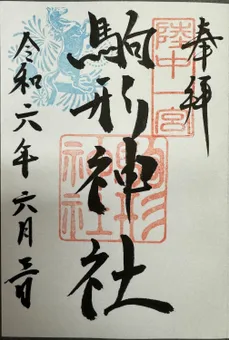 奉拝
陸中一宮
駒形神社
駒形神社
令和六年六月三日